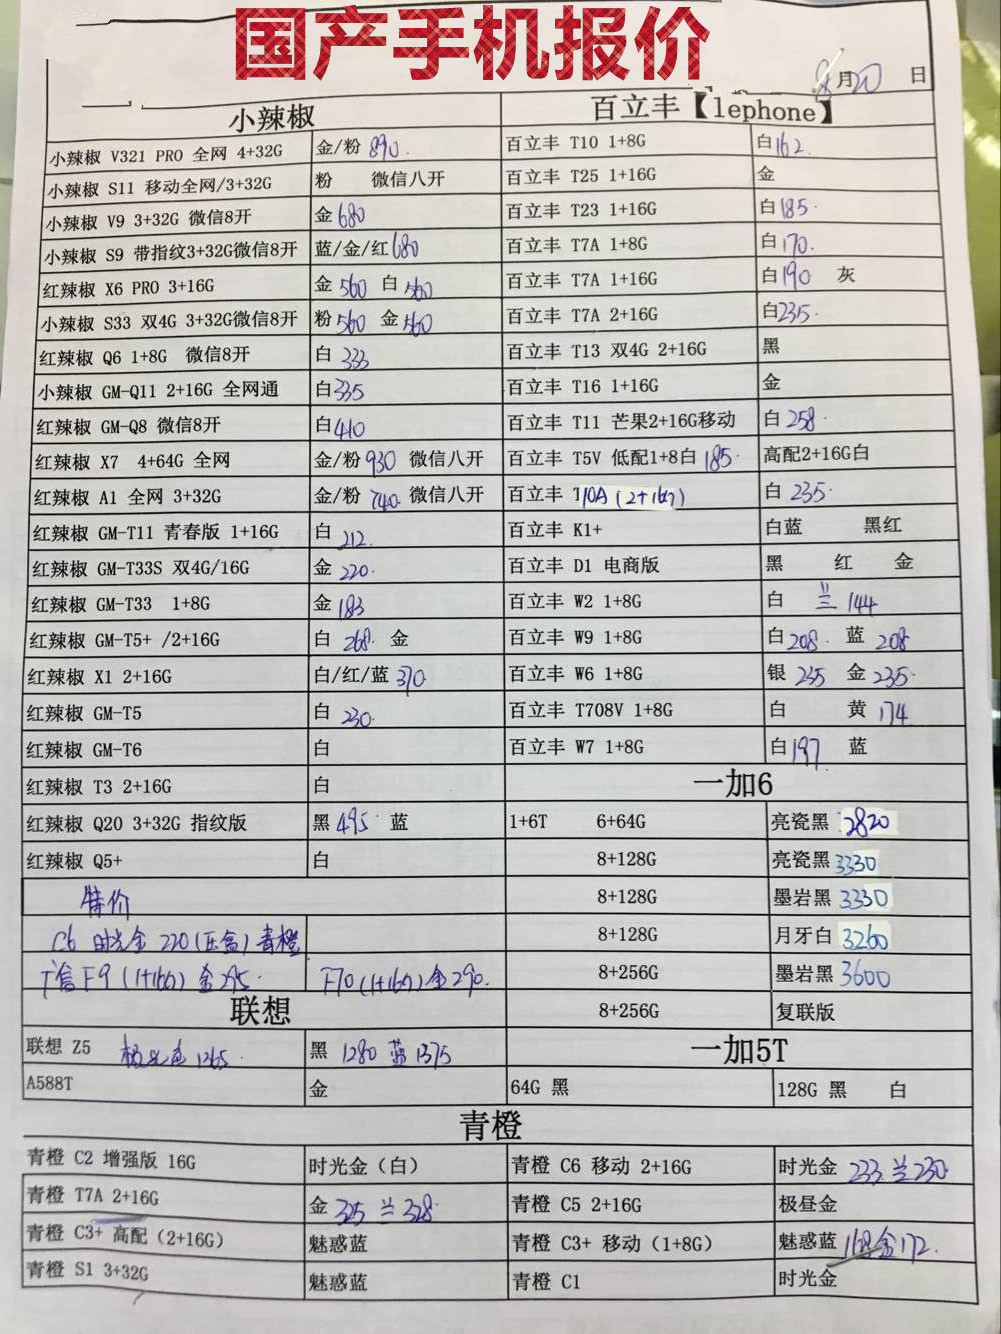 国产手机报价
8月20日
小辣椒
小辣椒 V321 PRO 全网 4+32G 金/粉 890.
小辣椒 S11 移动全网/3+32G 粉 微信八开
小辣椒 V9 3+32G 微信8开 金 680
小辣椒 S9 带指纹3+32G微信8开 蓝/金/红 680
红辣椒 X6 PRO 3+16G 金 560 白 560
小辣椒 S33 双4G 3+32G微信8开 粉 560 金 560
红辣椒 Q6 1+8G 微信8开 白 333
小辣椒 GM-Q11 2+16G 全网通 白 335
红辣椒 GM-Q8 微信8开 白 410
红辣椒 X7 4+64G 全网 金/粉 930 微信八开
红辣椒 A1 全网 3+32G 金/粉 740. 微信八开
红辣椒 GM-T11 青春版 1+16G 白 212.
红辣椒 GM-T33S 双4G/16G 金 220.
红辣椒 GM-T33 1+8G 金 183
红辣椒 GM-T5+ /2+16G 白 268. 金
红辣椒 X1 2+16G 白/红/蓝 370.
红辣椒 GM-T5 白 230.
红辣椒 GM-T6 白
红辣椒 T3 2+16G 白
红辣椒 Q20 3+32G 指纹版 黑 495 蓝
红辣椒 Q5+ 白
特价
C6 时光金 220 (压盒) 青橙
信 F9 (1+16G) 金 295. F70 (1+16G) 金 290.
联想
联想 Z5 极光色 1265. 黑 1280 蓝 1375
A588T 金
百立丰【lephone】
百立丰 T10 1+8G 白 162.
百立丰 T25 1+16G 金
百立丰 T23 1+16G 白 185.
百立丰 T7A 1+8G 白 170.
百立丰 T7A 1+16G 白 190 灰
百立丰 T7A 2+16G 白 235.
百立丰 T13 双4G 2+16G 黑
百立丰 T16 1+16G 金
百立丰 T11 芒果2+16G移动 白 258.
百立丰 T5V 低配1+8白 185. 高配2+16G白
百立丰 T10A (2+16G) 白 235.
百立丰 K1+ 白蓝 黑红
百立丰 D1 电商版 黑 红 金
百立丰 W2 1+8G 白 兰 144
百立丰 W9 1+8G 白 208. 蓝 208
百立丰 W6 1+8G 银 235 金 235.
百立丰 T708V 1+8G 白 黄 174
百立丰 W7 1+8G 白 197. 蓝
一加6
1+6T 6+64G 亮瓷黑 2820
8+128G 亮瓷黑 3330
8+128G 墨岩黑 3330
8+128G 月牙白 3260
8+256G 墨岩黑 3600
8+256G 复联版
一加5T
64G 黑 128G 黑 白
青橙
青橙 C2 增强版 16G 时光金（白） 青橙 C6 移动 2+16G 时光金 233. 兰 230
青橙 T7A 2+16G 金 325 兰 328. 青橙 C5 2+16G 极昼金
青橙 C3+ 高配（2+16G） 魅惑蓝 青橙 C3+ 移动（1+8G） 魅惑蓝 168 金 172.
青橙 S1 3+32G 魅惑蓝 青橙 C1 时光金